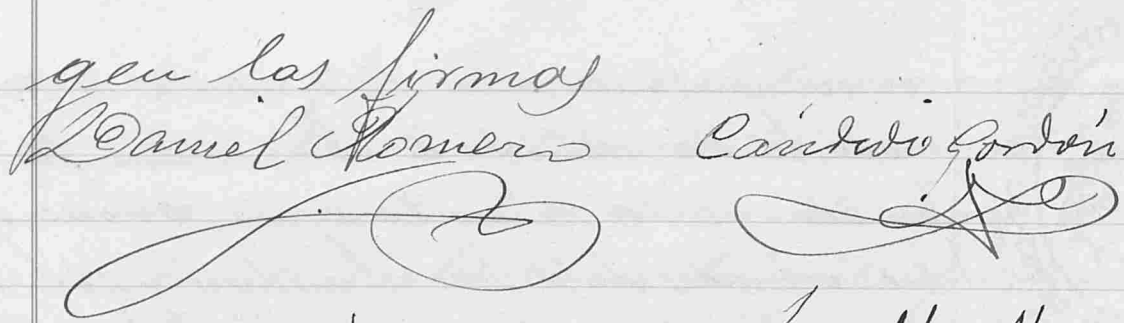 gen las firmas
Daniel Romero Cándido Cordón